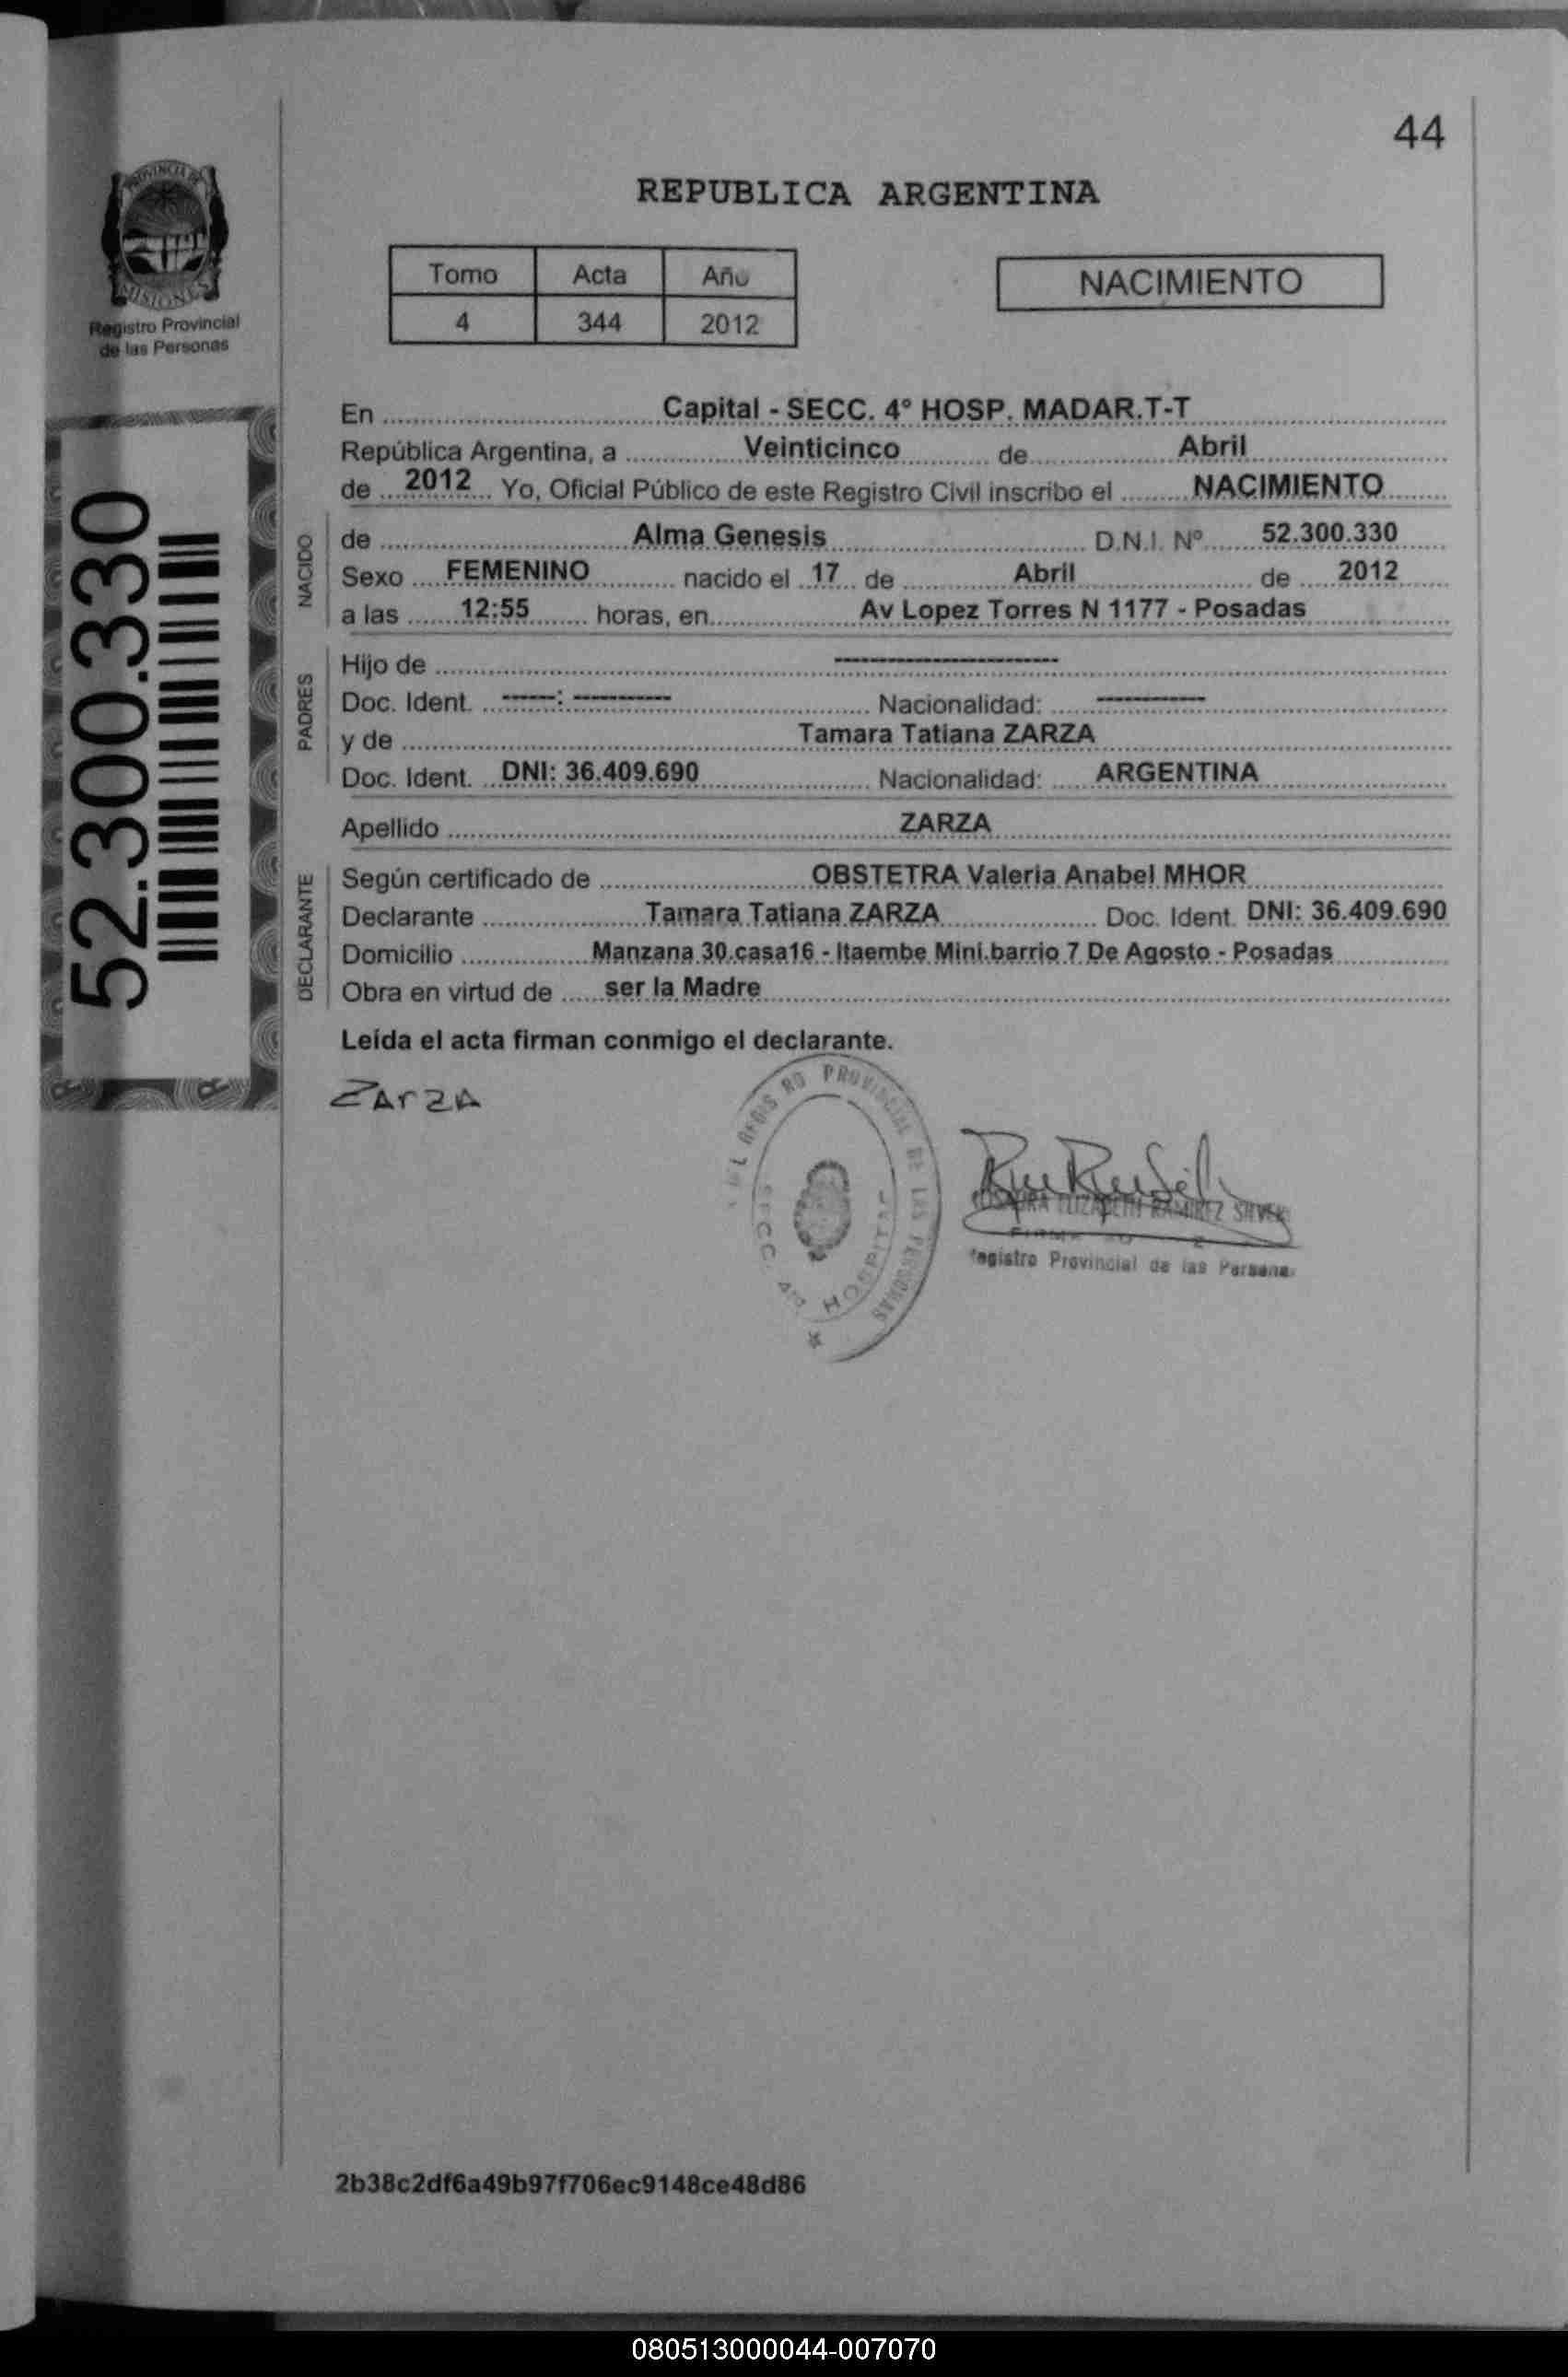 44
PROVINCIA DE
MISIONES
Registro Provincial
de las Personas
REPUBLICA ARGENTINA
Tomo Acta Año
4 344 2012
NACIMIENTO
52.300.330
En Capital - SECC. 4° HOSP. MADAR.T-T
República Argentina, a Veinticinco de Abril
de 2012 Yo, Oficial Público de este Registro Civil inscribo el NACIMIENTO
NACIDO
de Alma Genesis D.N.I. Nº 52.300.330
Sexo FEMENINO nacido el 17 de Abril de 2012
a las 12:55 horas, en Av Lopez Torres N 1177 - Posadas
PADRES
Hijo de --------------------
Doc. Ident. -----: --------- Nacionalidad: ----------
y de Tamara Tatiana ZARZA
Doc. Ident. DNI: 36.409.690 Nacionalidad: ARGENTINA
Apellido ZARZA
DECLARANTE
Según certificado de OBSTETRA Valeria Anabel MHOR
Declarante Tamara Tatiana ZARZA Doc. Ident. DNI: 36.409.690
Domicilio Manzana 30.casa16 - Itaembe Mini.barrio 7 De Agosto - Posadas
Obra en virtud de ser la Madre
Leída el acta firman conmigo el declarante.
ZArzA
PROVINCIAL DE LAS PERSONAS
SECC. 4ta HOSPITAL
ELIZABETH RAMIREZ
Registro Provincial de las Personas
2b38c2df6a49b97f706ec9148ce48d86
080513000044-007070